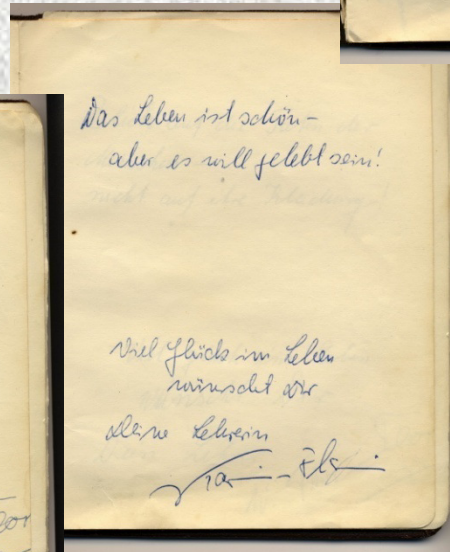 Das Leben ist schön –
aber es will gelebt sein!
Viel Glück im Leben
wünscht Dir
Deine Lehrerin